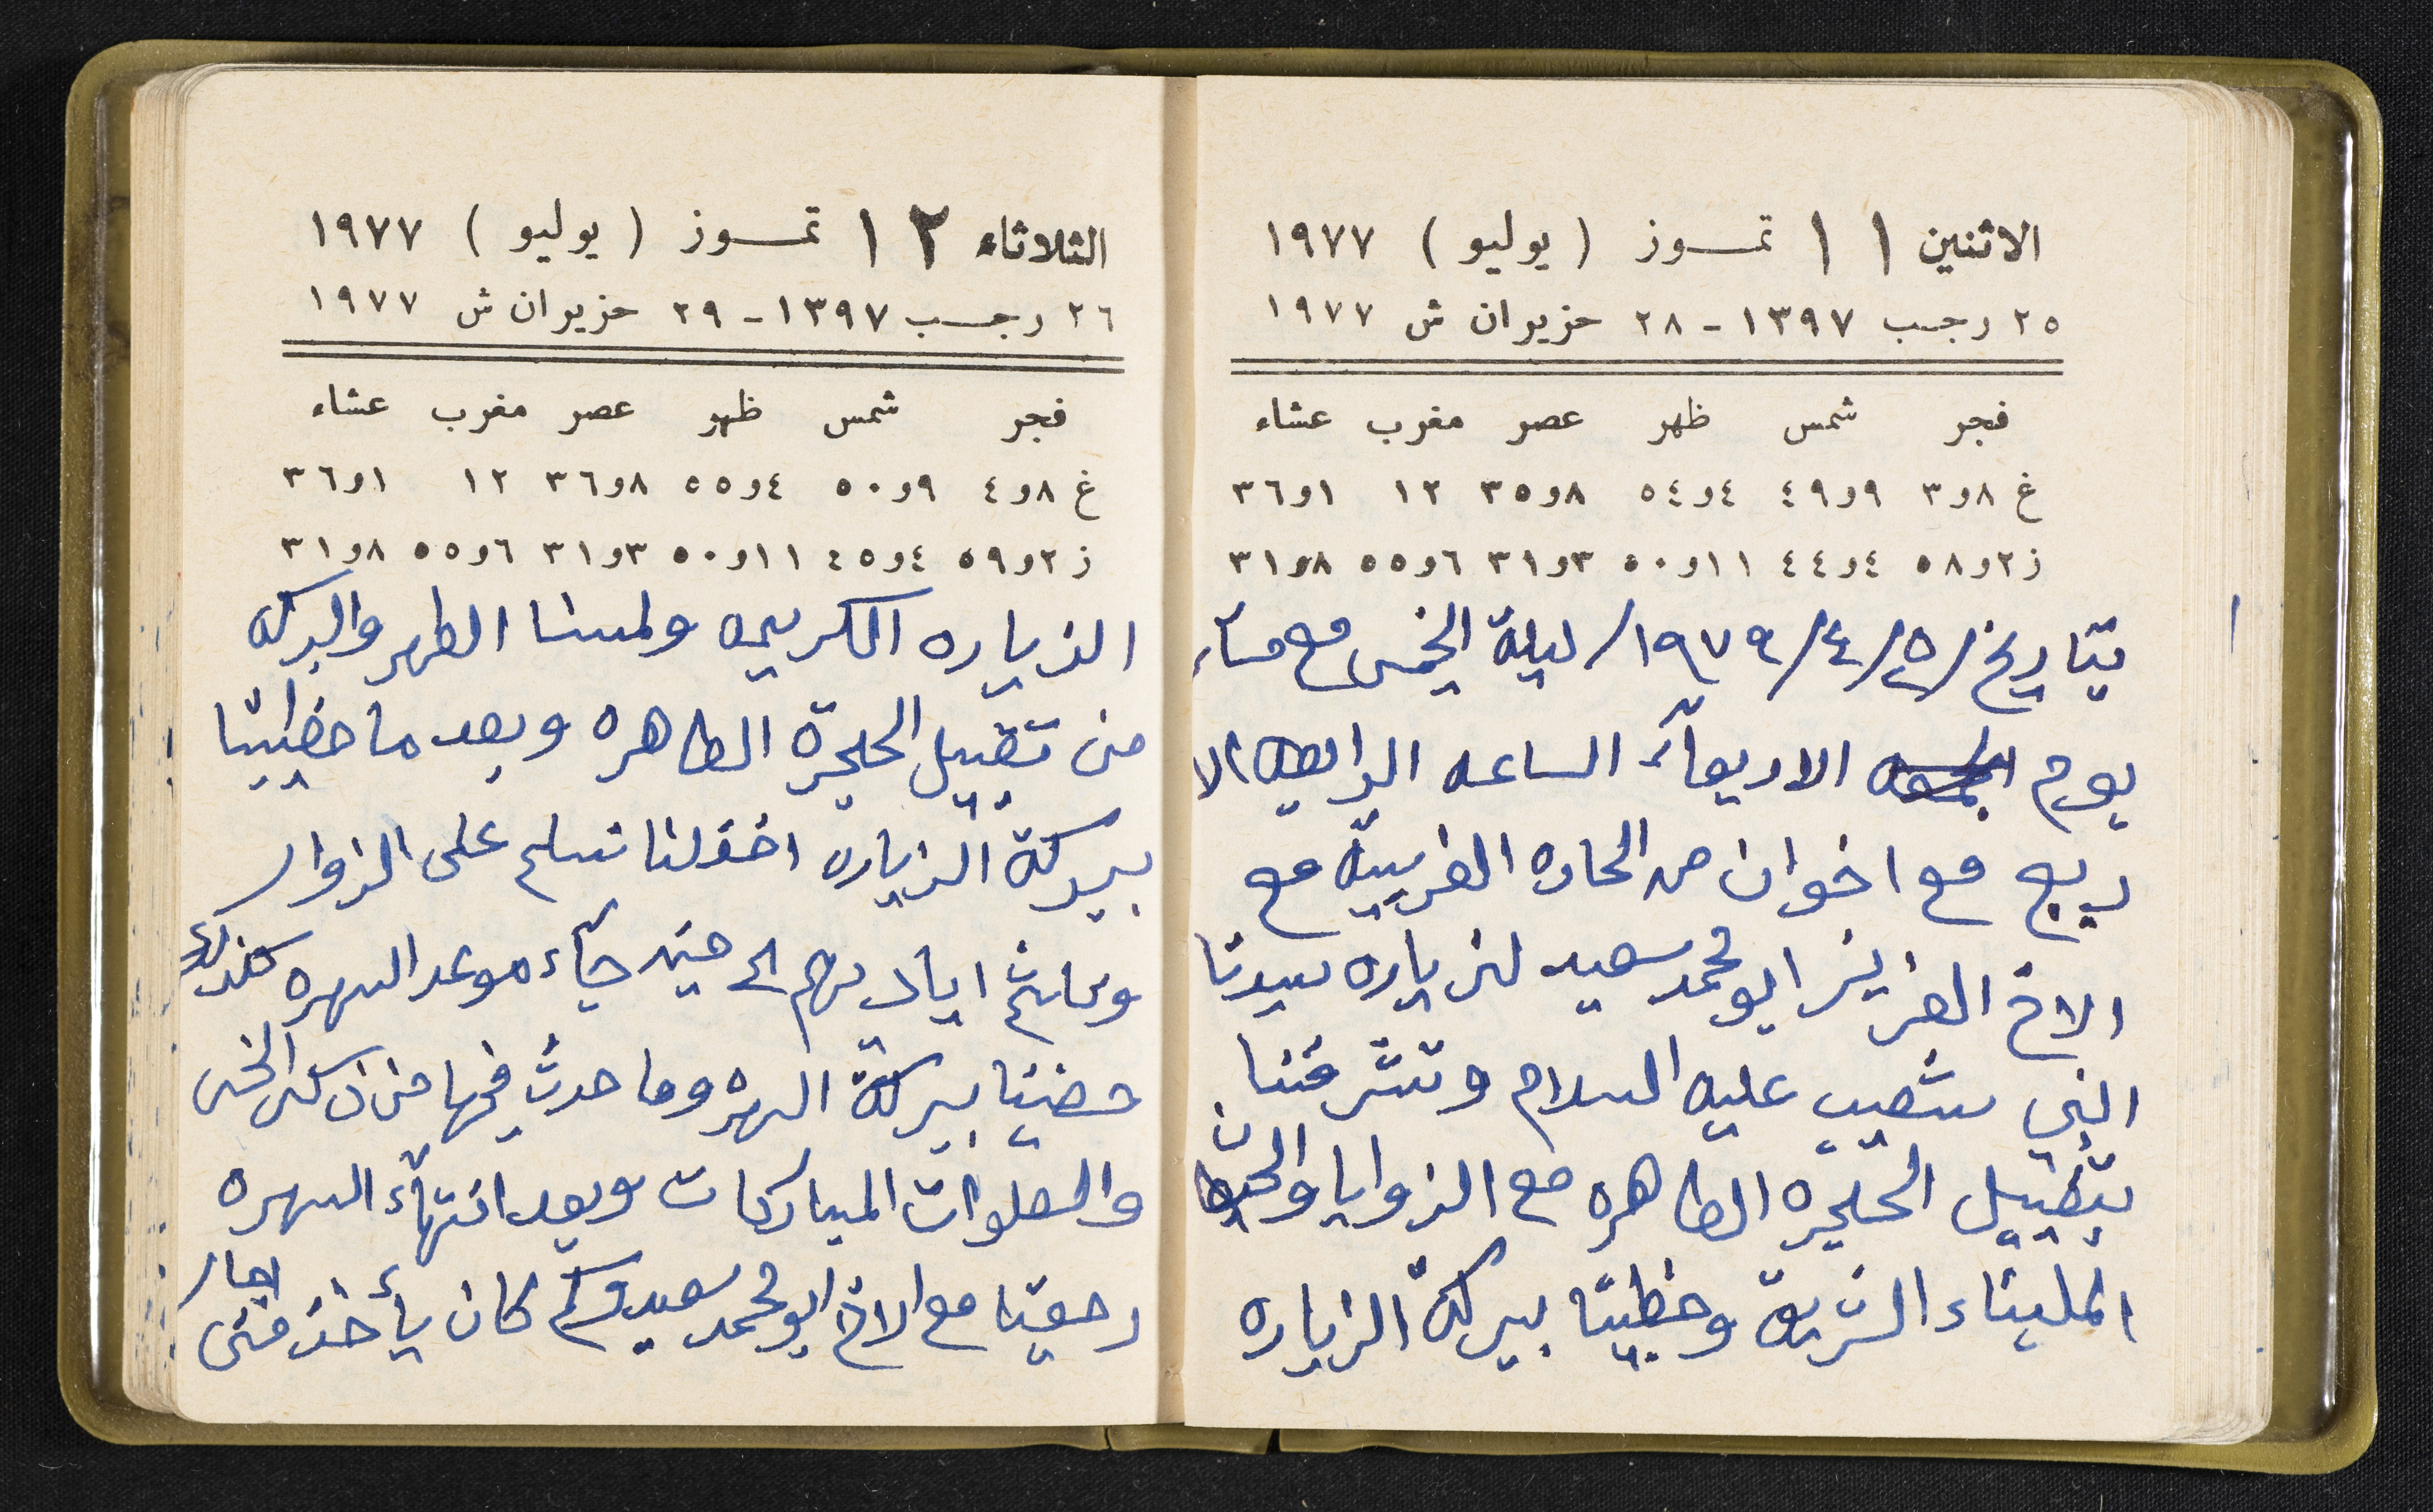 الاثنين ١١ تمـوز (يوليو) ١٩٧٧
٢٥ رجب ١٣٩٧ - ٢٨ حزيران ش ١٩٧٧
فجر شمس ظهر عصر مغرب عشاء
غ ٨و٣ ٩و٤٩ ٤و٥٤ ٨و٣٥ ١٢ ١و٣٦
ز ٢و٥٨ ٤و٤٤ ١١و٥٠ ٣و٣١ ٦و٥٥ ٨و٣١
بتاريخ /٢٥/٤/١٩٧٩/ ليلة الخميس مع مسآء
يوم الاربعآء الساعه الرابعه الا
ربع مع اخوان من الحاره الغربية مع
الاخ العزيز ابو محمد سعيد لزياره سيدنا
النبي شعيب عليه السلام وتشرفنا
بتقبيل الحجره الطاهره مع الزوايا والحيطان
المليناء الشريفة وحظينا ببركة الزياره
الثلاثاء ١٢ تمـوز (يوليو) ١٩٧٧
٢٦ رجـب ١٣٩٧ - ٢٩ حزيران ش ١٩٧٧
فجر شمس ظهر عصر مغرب عشاء
غ ٨و٤ ٩و٥٠ ٤و٥٥ ٨و٣٦ ١٢ ١و٣٦
ز ٢و٥٩ ٤و٤٥ ١١و٥٠ ٣و٣١ ٦و٥٥ ٨و٣١
الزياره الكريمه ولمسنا الطهر والبركه
من تقبيل الحجرة الطاهره وبعد ما حظينا
ببركة الزياره اخذلنا نسلم على الزوار
اياديهم الى حين جآء موعد السهره كذلك
حضينا ببركة السهره وما حدث فيها من ذكر الخير
والصلوات المباركات وبعد انتهآء السهره
رجعنا مع الاخ ابو محمد سعيد وكم كان يأخذ مني اجار